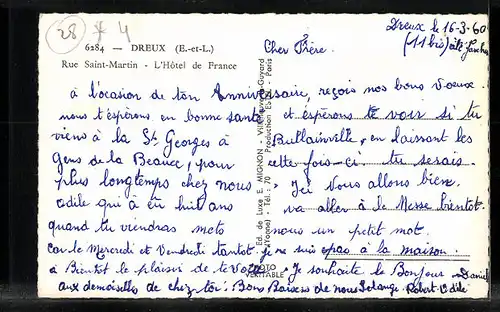 28 * 4
6284 — DREUX (E.-et-L.)
Rue Saint-Martin - L'Hôtel de France
Dreux le 16-3-60
(11 bis)
Cher Père.
à l'occasion de ton Anniversaire, reçois nos bons voeux.
nous t'espérons en bonne santé et espérons te voir si tu
viens à la St Georges à Bullainville, en laissant les
Gens de la Beauce, pour cette fois-ci. tu serais
plus longtemps chez nous. Ici Vous allons bien.
odile qui a eu huit ans va aller à la Messe bientôt.
quand tu viendras mets nous un petit mot.
Car le Mercredi et Vendredi tantôt je ne suis pas à la maison.
à Bientôt le plaisir de te voir. Je souhaite le Bonjour
aux demoiselles de chez toi. Bons Baisers de nous
Daniel
Robert Odile
Ed. de Luxe E. MIGNON -
(Yonne) - Tél. : 70
Production - Paris
PHOTO
VÉRITABLE